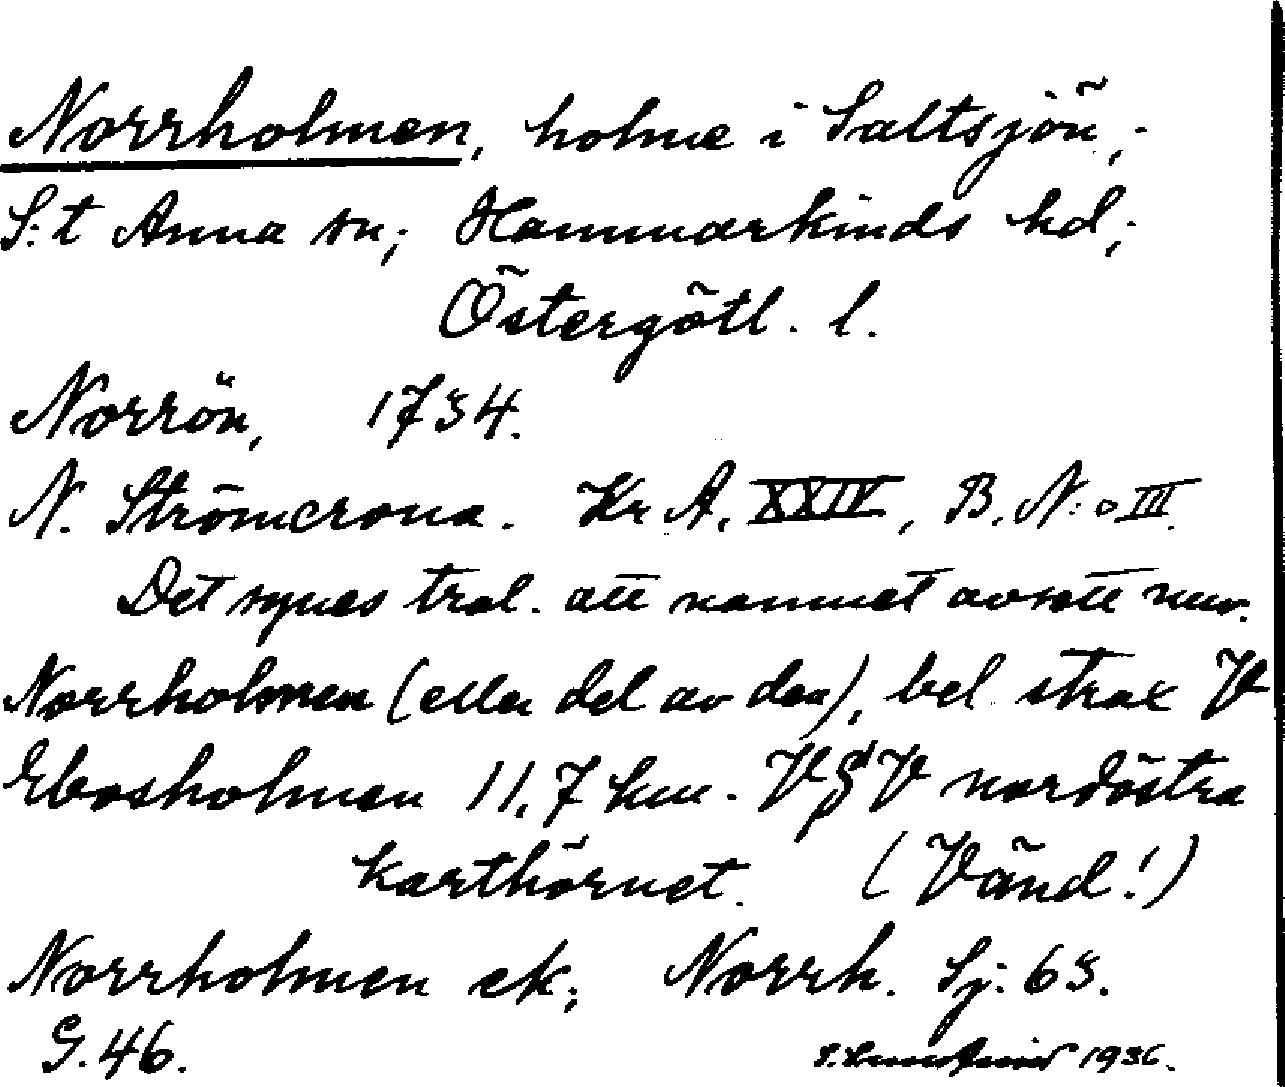 Norrholmen, holme i Saltsjön;
S:t Anna sn; Hammarkinds hd;
Östergötl. l.
Norrön, 1734.
N. Strömcrona. Kr A. XXIV, B. N:o III.
Det synes trol. att namnet avsett nuv.
Norrholmen (eller del av den), bel. strax V
Ebosholmen 11,7 km. V§V nordöstra
karthörnet. (Vänd!)
Norrholmen ek; Norrh. Sj: 63.
G. 46.
1936.